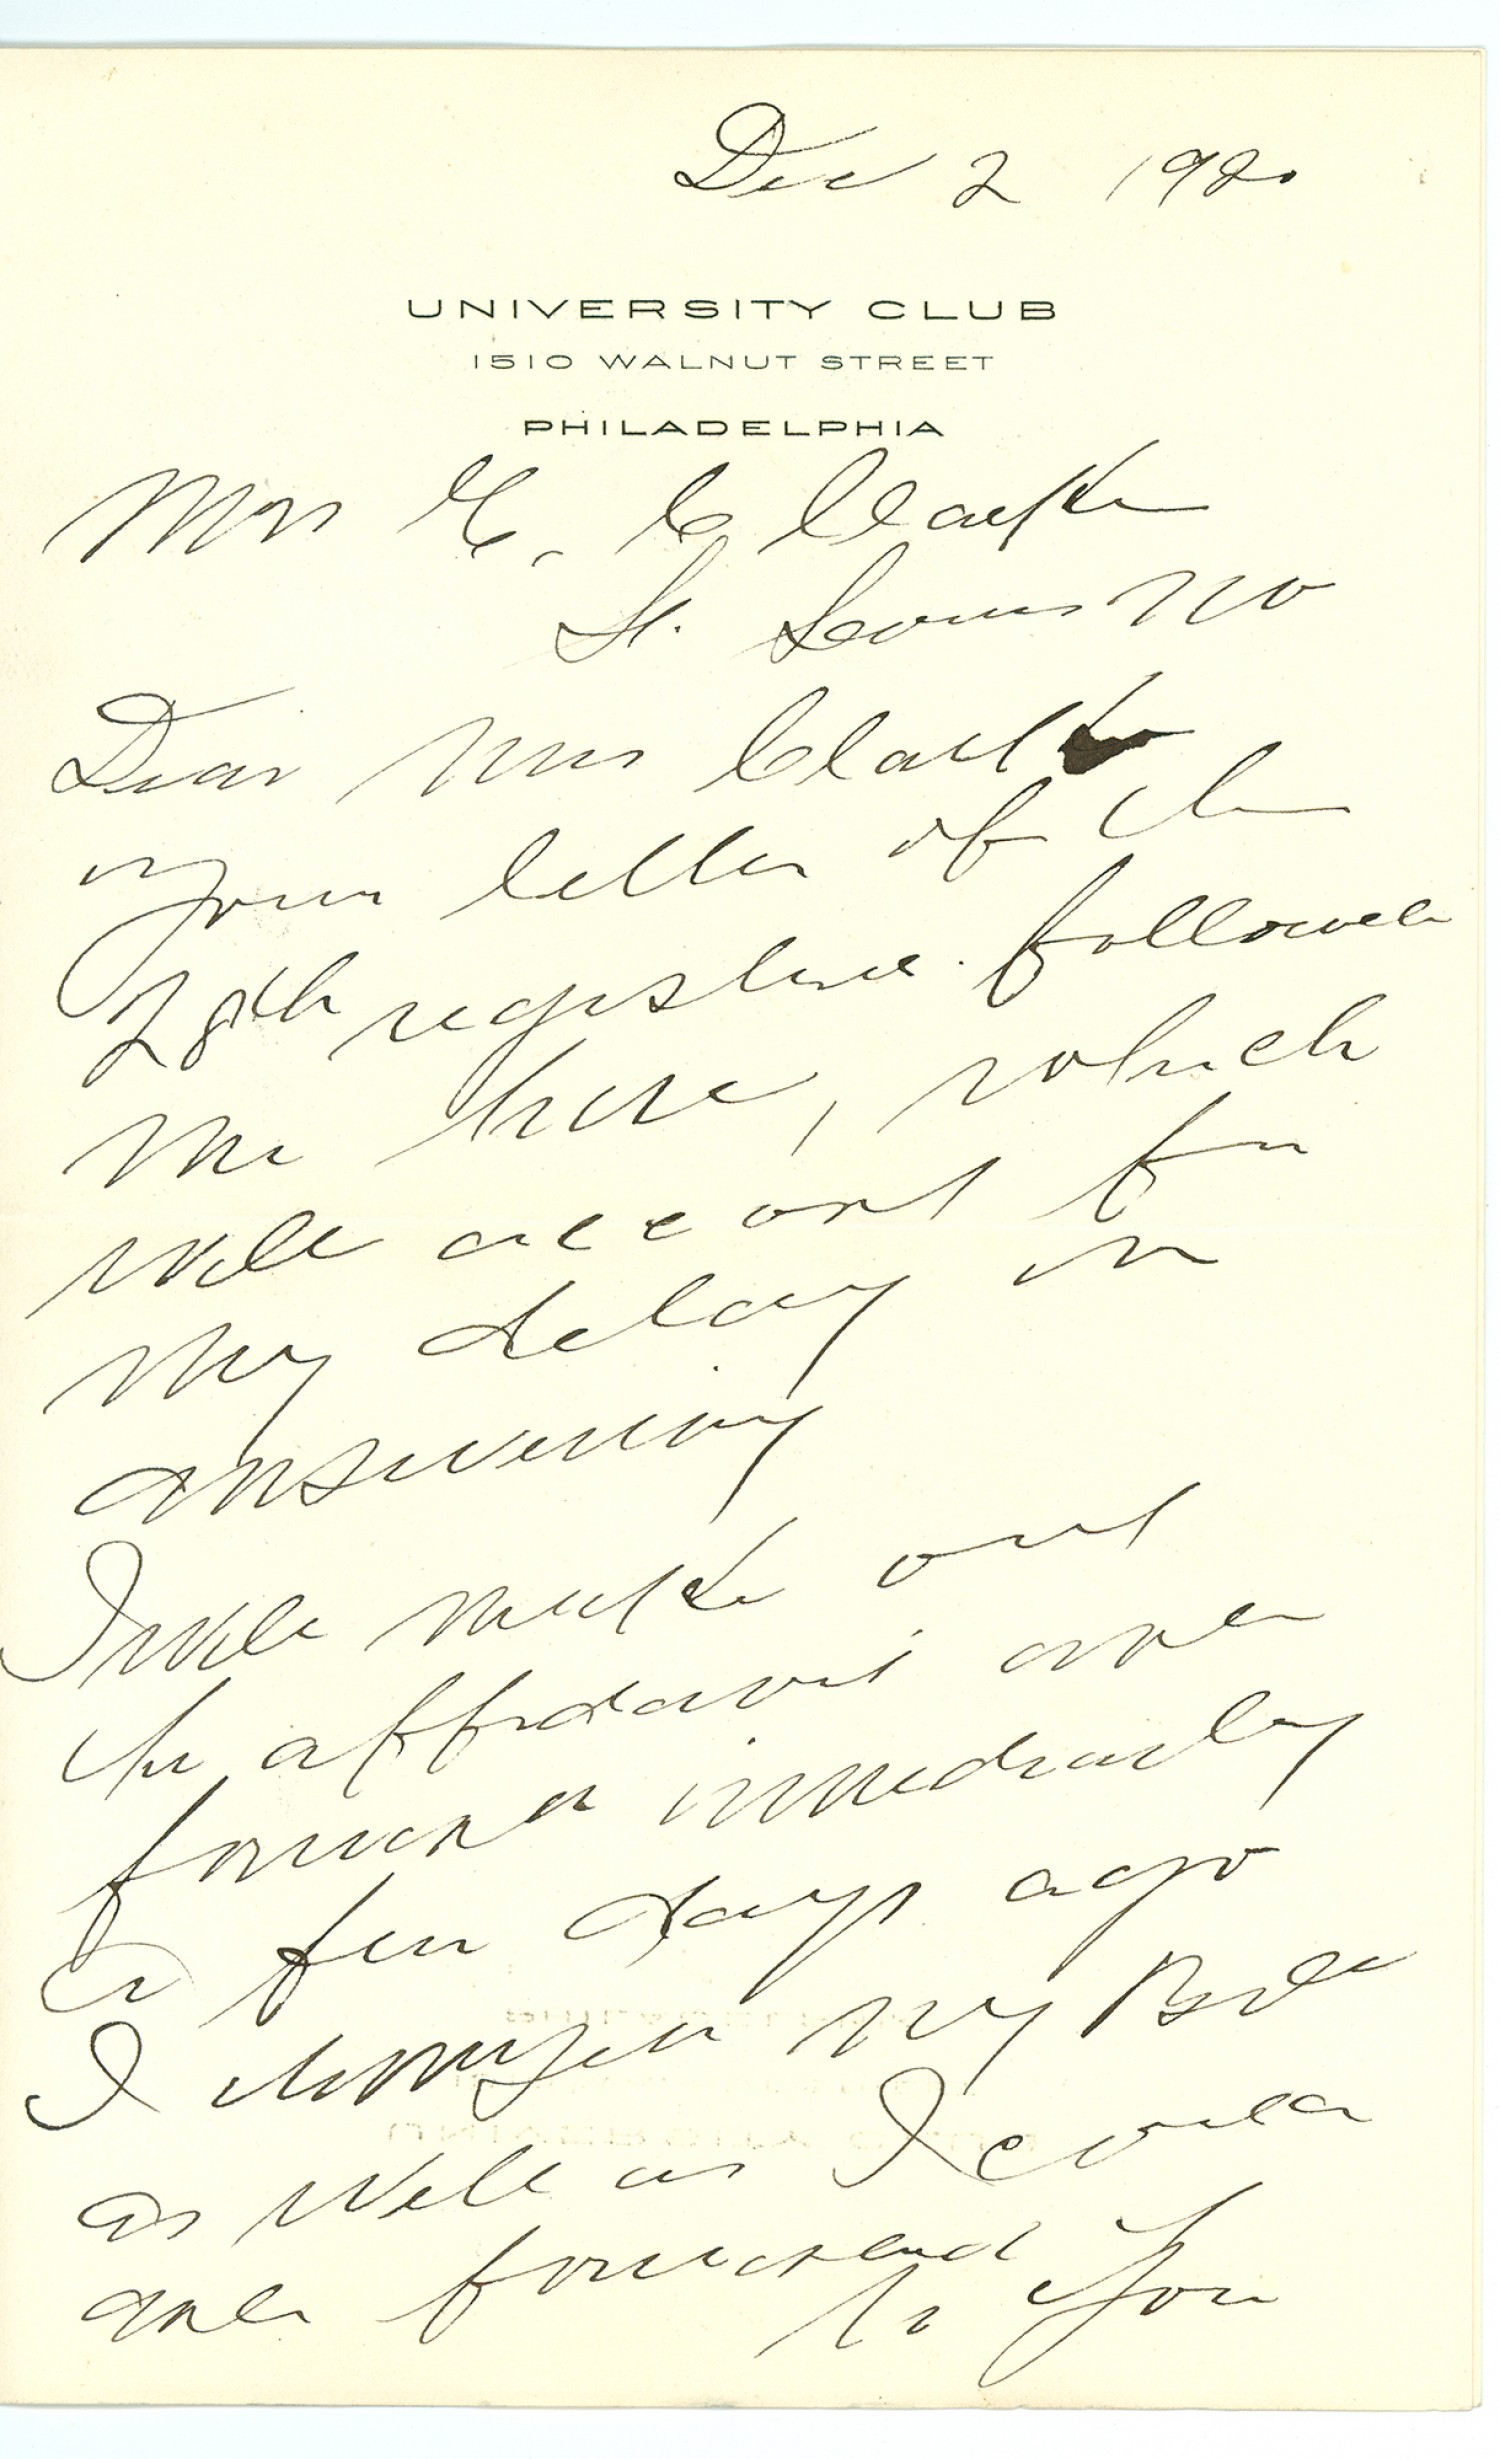 Dec 2 1920
UNIVERSITY CLUB
1510 WALNUT STREET
PHILADELPHIA
Mrs C Clark
St. Louis Mo
Dear Mrs Clark
Your letter of the
28th followed
me here, which
will account for
my delay in
answering
I will make out
the affidavit and
forward immediately
A few days ago
I my
as well as I could
and forward to you